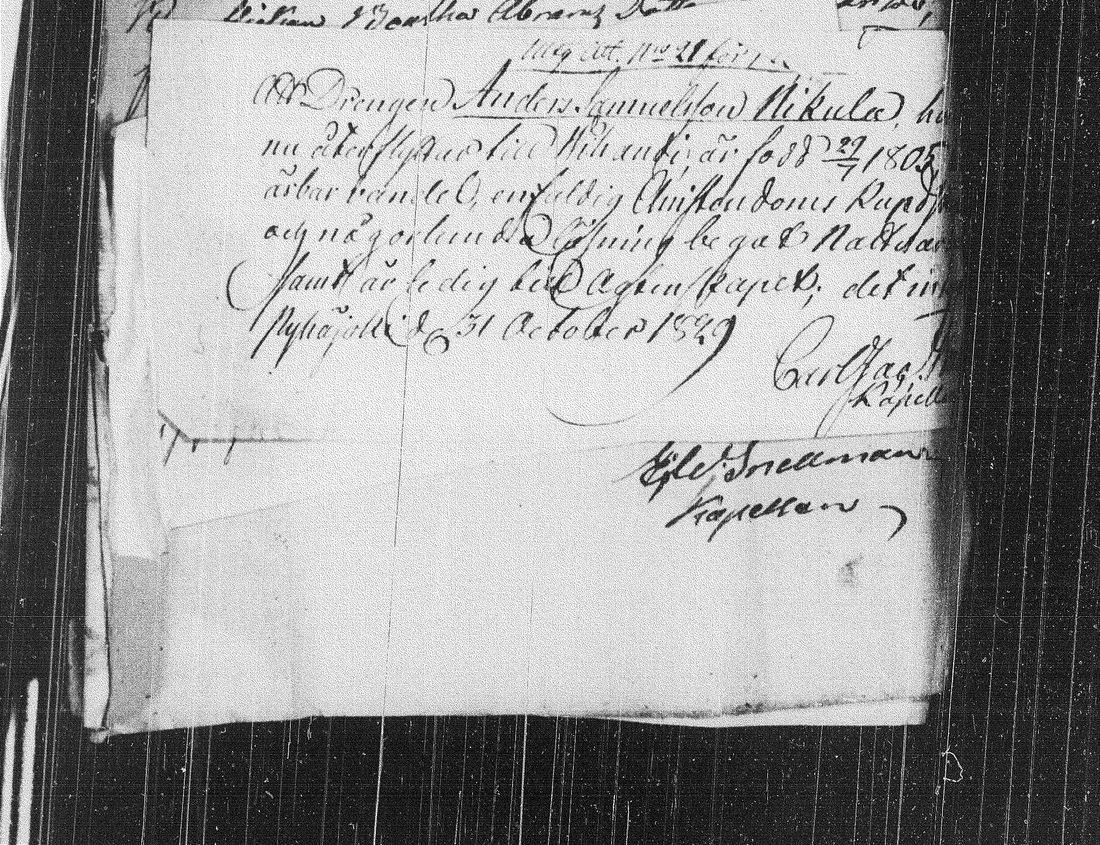 Pigan Beatha Abrams Dotter
Att. No 21 för
Att Drengen Anders Samuelsson Nikula, h
nu återflyttar till Wihandi; är född 29/7 1805,
ärbar vandel, enfaldig Christendoms Kund
och någorlunda Läsning begåt Nattvar
samt är ledig till Agtenskapet; det in
Pyhäjoki d. 31 October 1829
Carl Gas.
Kapella
Snellman
Kapellan